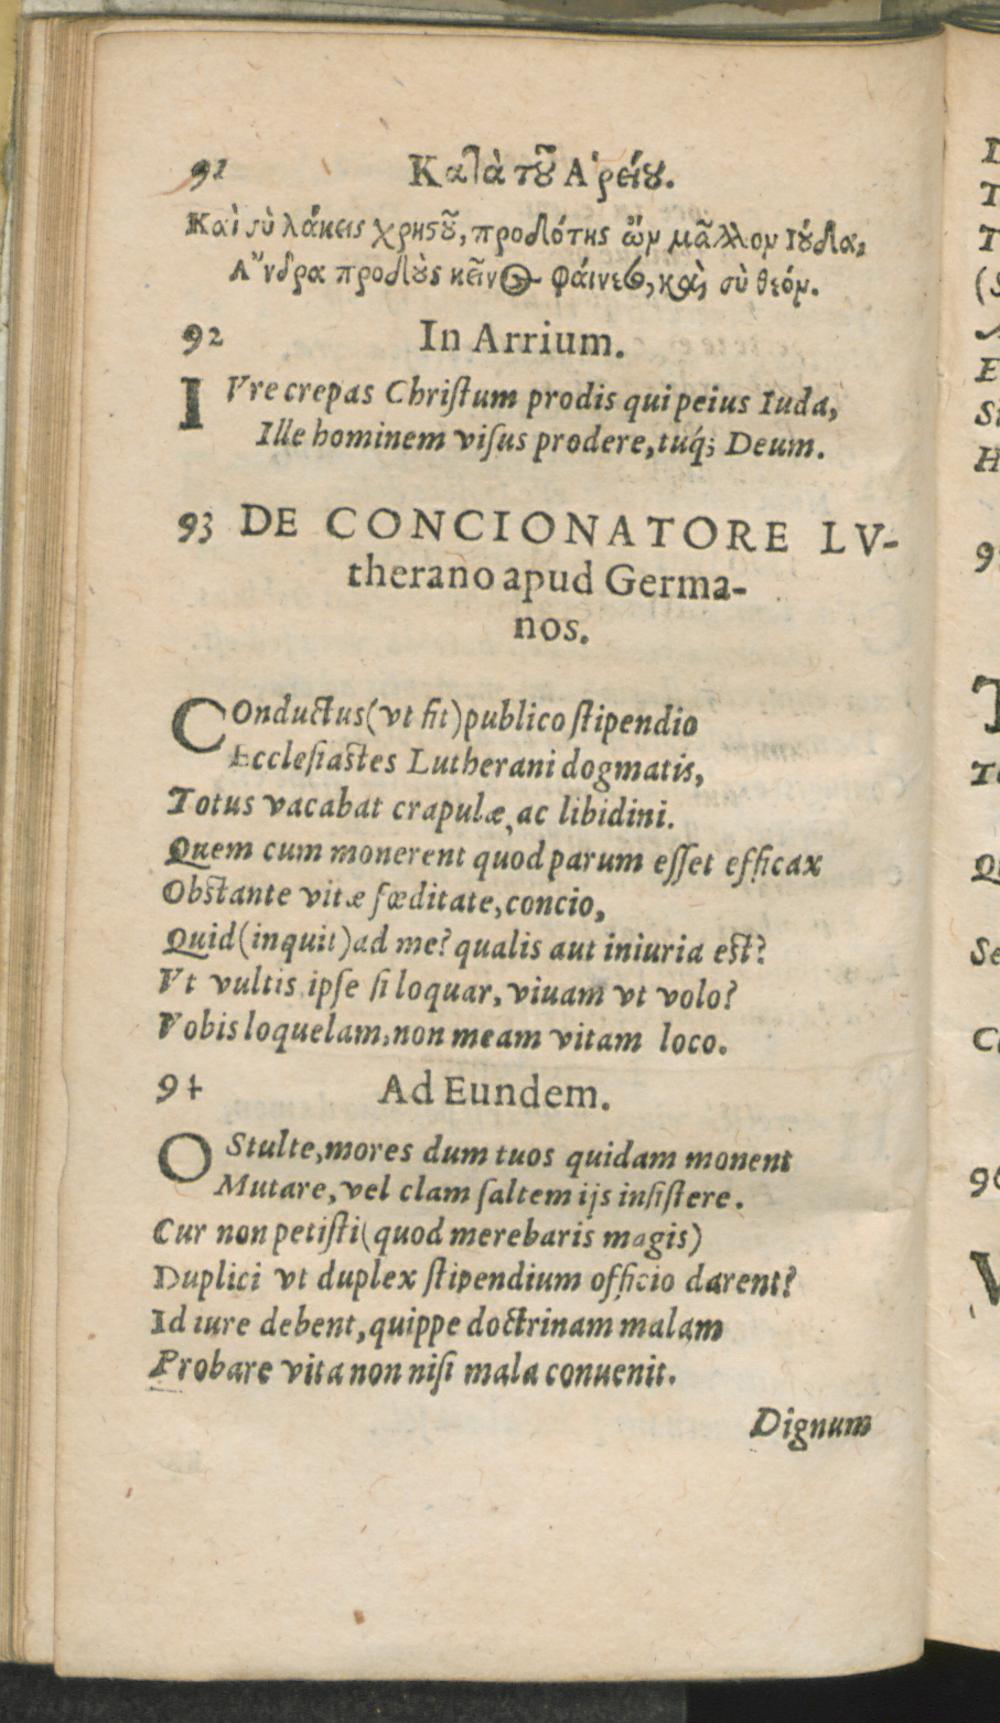 91 Καλὰ τοῦ Ἀρείου.
Καὶ σὺ λάκεις χρηστοῦ, προδότης ὢν μᾶλλον Ἰούδα,
Ἄνδρα προδοὺς κεῖνος φαίνεθ, καὶ σὺ θεόν.
92 In Arrium.
IVre crepas Chriſtum prodis qui peius Iuda,
Ille hominem viſus prodere, tuq́; Deum.
93 DE CONCIONATORE LV-
therano apud Germa-
nos.
COnductus (vt fit) publico ſtipendio
Eccleſiastes Lutherani dogmatis,
Totus vacabat crapulæ, ac libidini.
Quem cum monerent quod parum eſſet efficax
Obstante vitæ fœditate, concio,
Quid (inquit) ad me? qualis aut iniuria est?
Vt vultis ipſe ſi loquar, viuam vt volo?
Vobis loquelam, non meam vitam loco.
94 Ad Eundem.
O Stulte, mores dum tuos quidam monent
Mutare, vel clam ſaltem ijs inſiſtere.
Cur non petiſti (quod merebaris magis)
Duplici vt duplex ſtipendium officio darent?
Id iure debent, quippe doctrinam malam
Probare vita non niſi mala conuenit.
Dignum